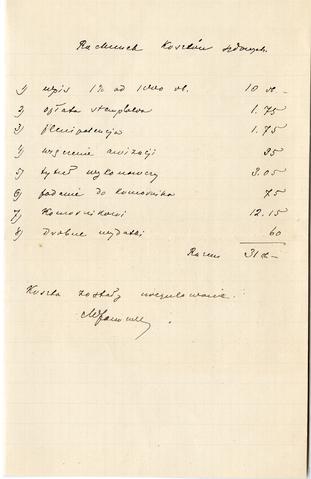 Rachunek Kosztów sądowych
1) wpis 1% od 1000 zł. 10 zł. –
2) opłata stemplowa 1.75
3) plenipotencja 1.75
4) wręczenie awizacji 95
5) tytuł wykonawczy 3.05
6) podanie do komornika 75
7) Komornikowi 12.15
8) Drobne wydatki 60
Razem 31 zł –
Koszta zostały uregulowane.